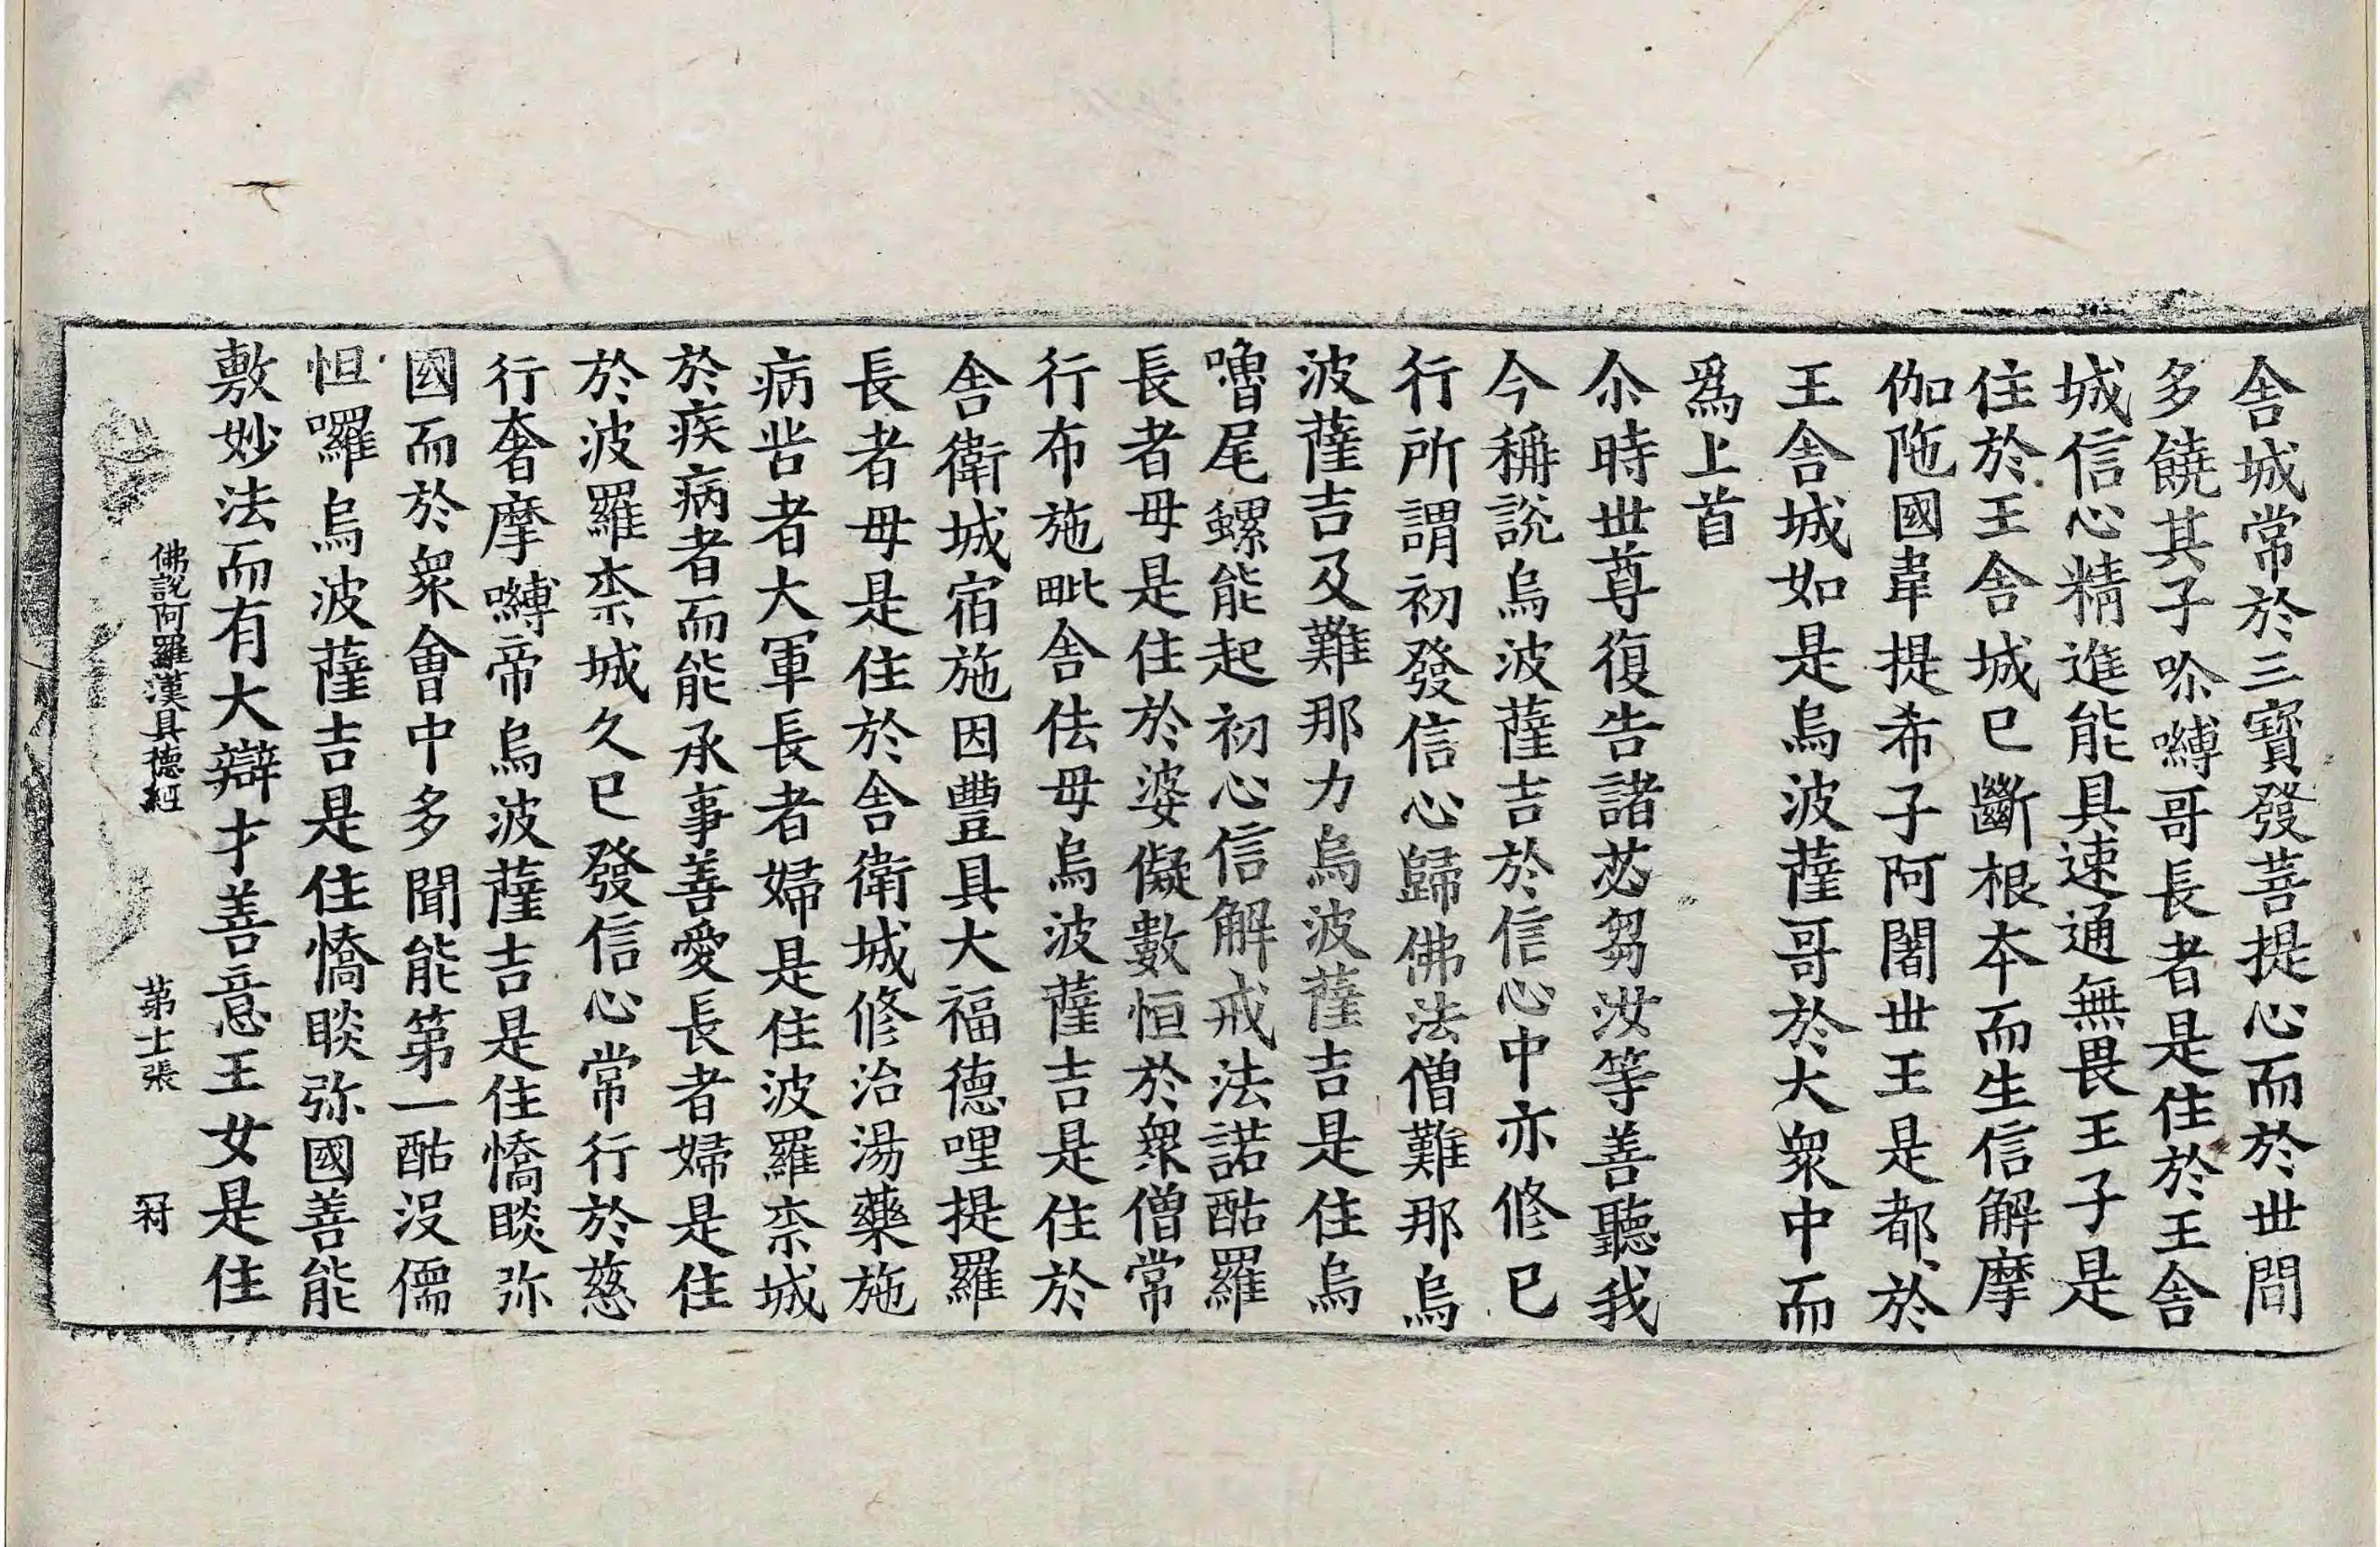 舎城常於三寶發菩提心而於丗間
多饒其子哳嚩哥長者是住於王舎
城信心精進能具速通無畏王子是
住於王舎城巳斷根夲而生信解摩
伽陁國韋提希子阿闍丗王是都於
王舎城如是烏波薩哥於大衆中而
爲上首
尒時丗尊復告諸苾芻汝等善聽我
今稱說烏波薩吉於信心中亦修巳
行所謂初發信心歸佛法僧難那烏
波薩吉及難那力烏波薩吉是住烏
嚕尾螺能起初心信解戒法諾酤羅
長者母是住於婆儗數恒於衆僧常
行布施毗舎佉母烏波薩吉是住於
舎衛城宿施因豊具大福德哩提羅
長者母是住於舎衛城修治湯藥施
病苦者大軍長者婦是住波羅柰城
於疾病者而能承事善愛長者婦是住
於波羅柰城久巳發信心常行於慈
行奢摩嚩帝烏波薩吉是住憍睒弥
國而於衆會中多聞能第一酤没儒
怛囉烏波薩吉是住憍睒弥國善能
敷妙法而有大辯才善意王女是住
佛說阿羅漢具德經 苐士張 冠